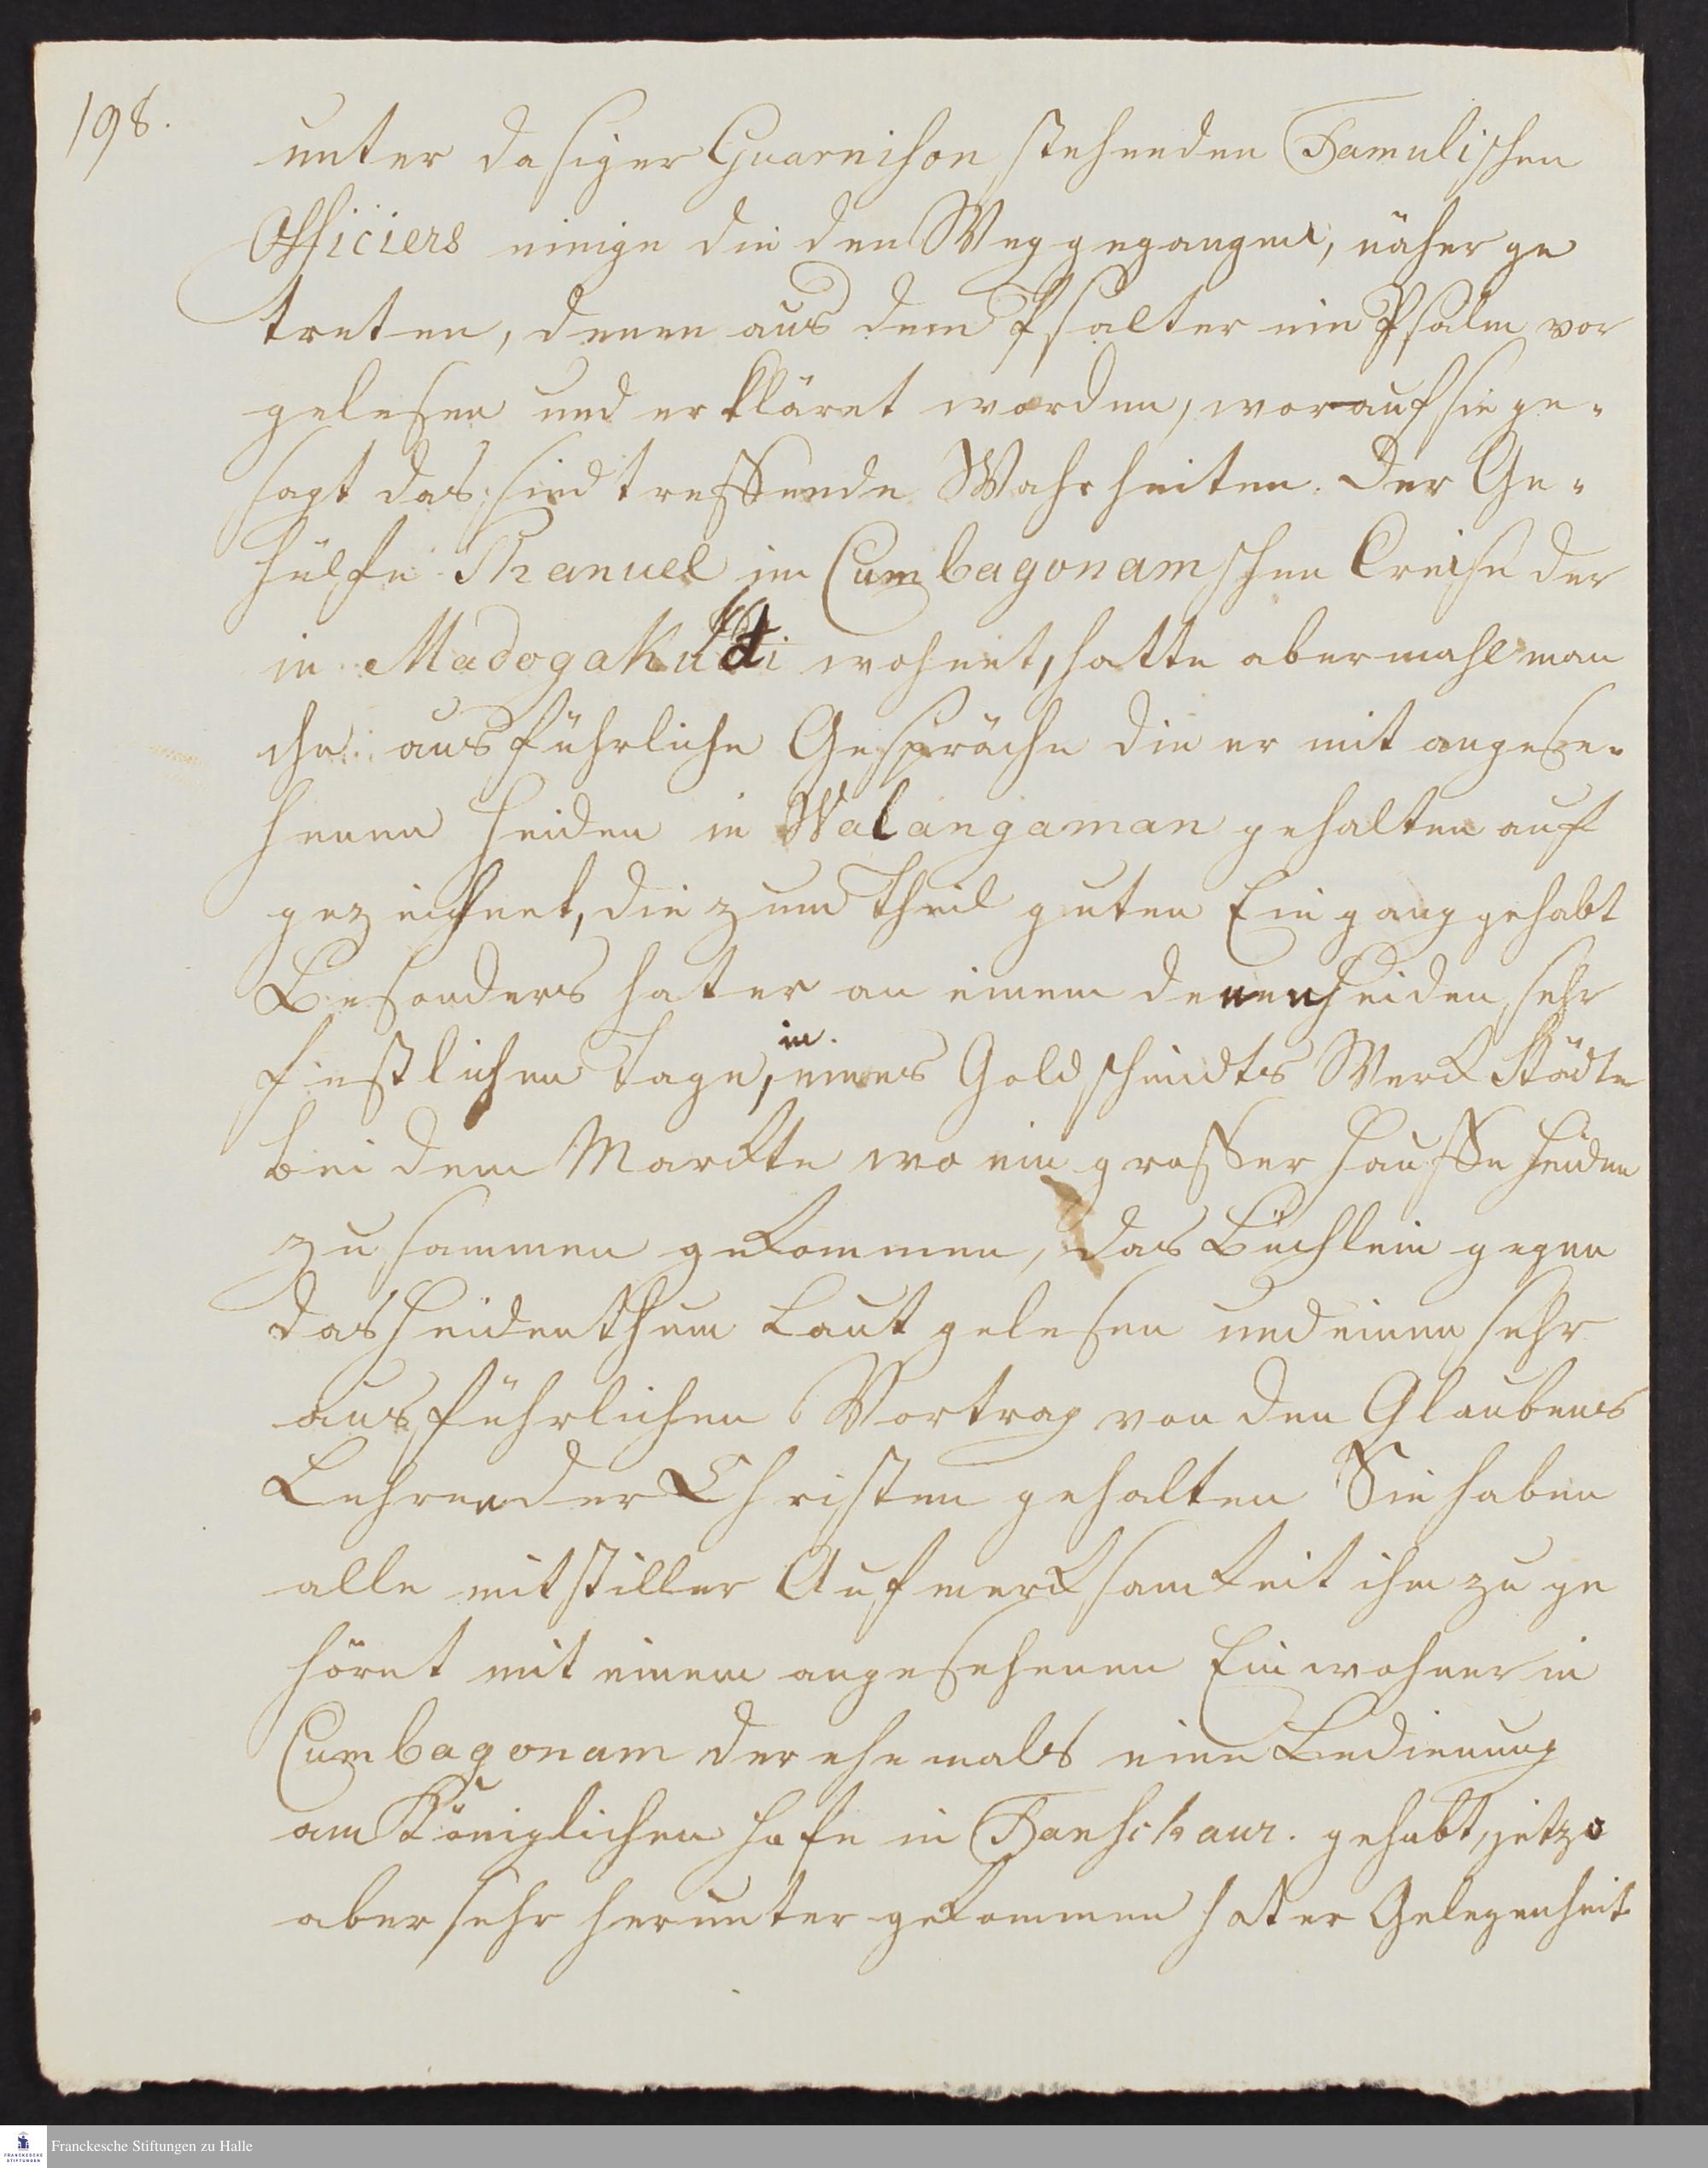 198.
unter dasiger Guarnison stehenden Tamulischen
Officiers einige die den Weg gegangen, näher ge
treten, denen aus dem Psalter ein Psalm vor
gelesen und erkläret worden, worauf sie ge-
sagt das sind treffende Wahrheiten. Der Ge-
hülfe Thanuel im Cumbagonamschen Creise der
in Madogakudi wohnet, hatte abermahl man
che ausführliche Gespräche die er mit angese-
henen Heiden in Walangaman gehalten auf
gezeichnet, die zum Theil guten Eingang gehabt
Besonders hat er an einem denen Heiden sehr
festlichen Tage, in eines Goldschmidts Werckstädte
bei dem Marckte wo ein grosser Hauffe Heiden
zusammen gekommen, das Büchlein gegen
das Heidenthum Laut gelesen und einen sehr
ausführlichen Vortrag von den Glaubens
Lehren der Christen gehalten Sie haben
alle mit stiller Aufmercksamkeit ihm zu ge
höret mit einem angesehenen Einwohner in
Cumbagonam der ehemals eine Bedienung
am Königlichen Hofe in Tanschaur. gehabt, jetzo
aber sehr herunter gekommen hat er Gelegenheit
Franckesche Stiftungen zu Halle
FRANCKESCHE
STIFTUNGEN